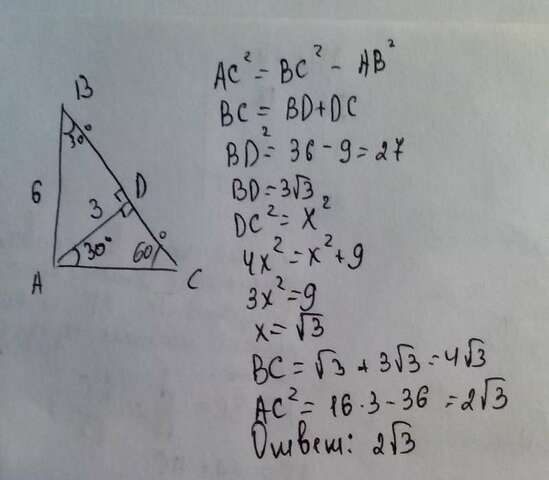 B
30°
6
D
3
30°
60°
A
C
AC² = BC² - AB²
BC = BD + DC
BD² = 36 - 9 = 27
BD = 3√3
DC² = x²
4x² = x² + 9
3x² = 9
x = √3
BC = √3 + 3√3 = 4√3
AC² = 16·3 - 36 = 2√3
Ответ: 2√3